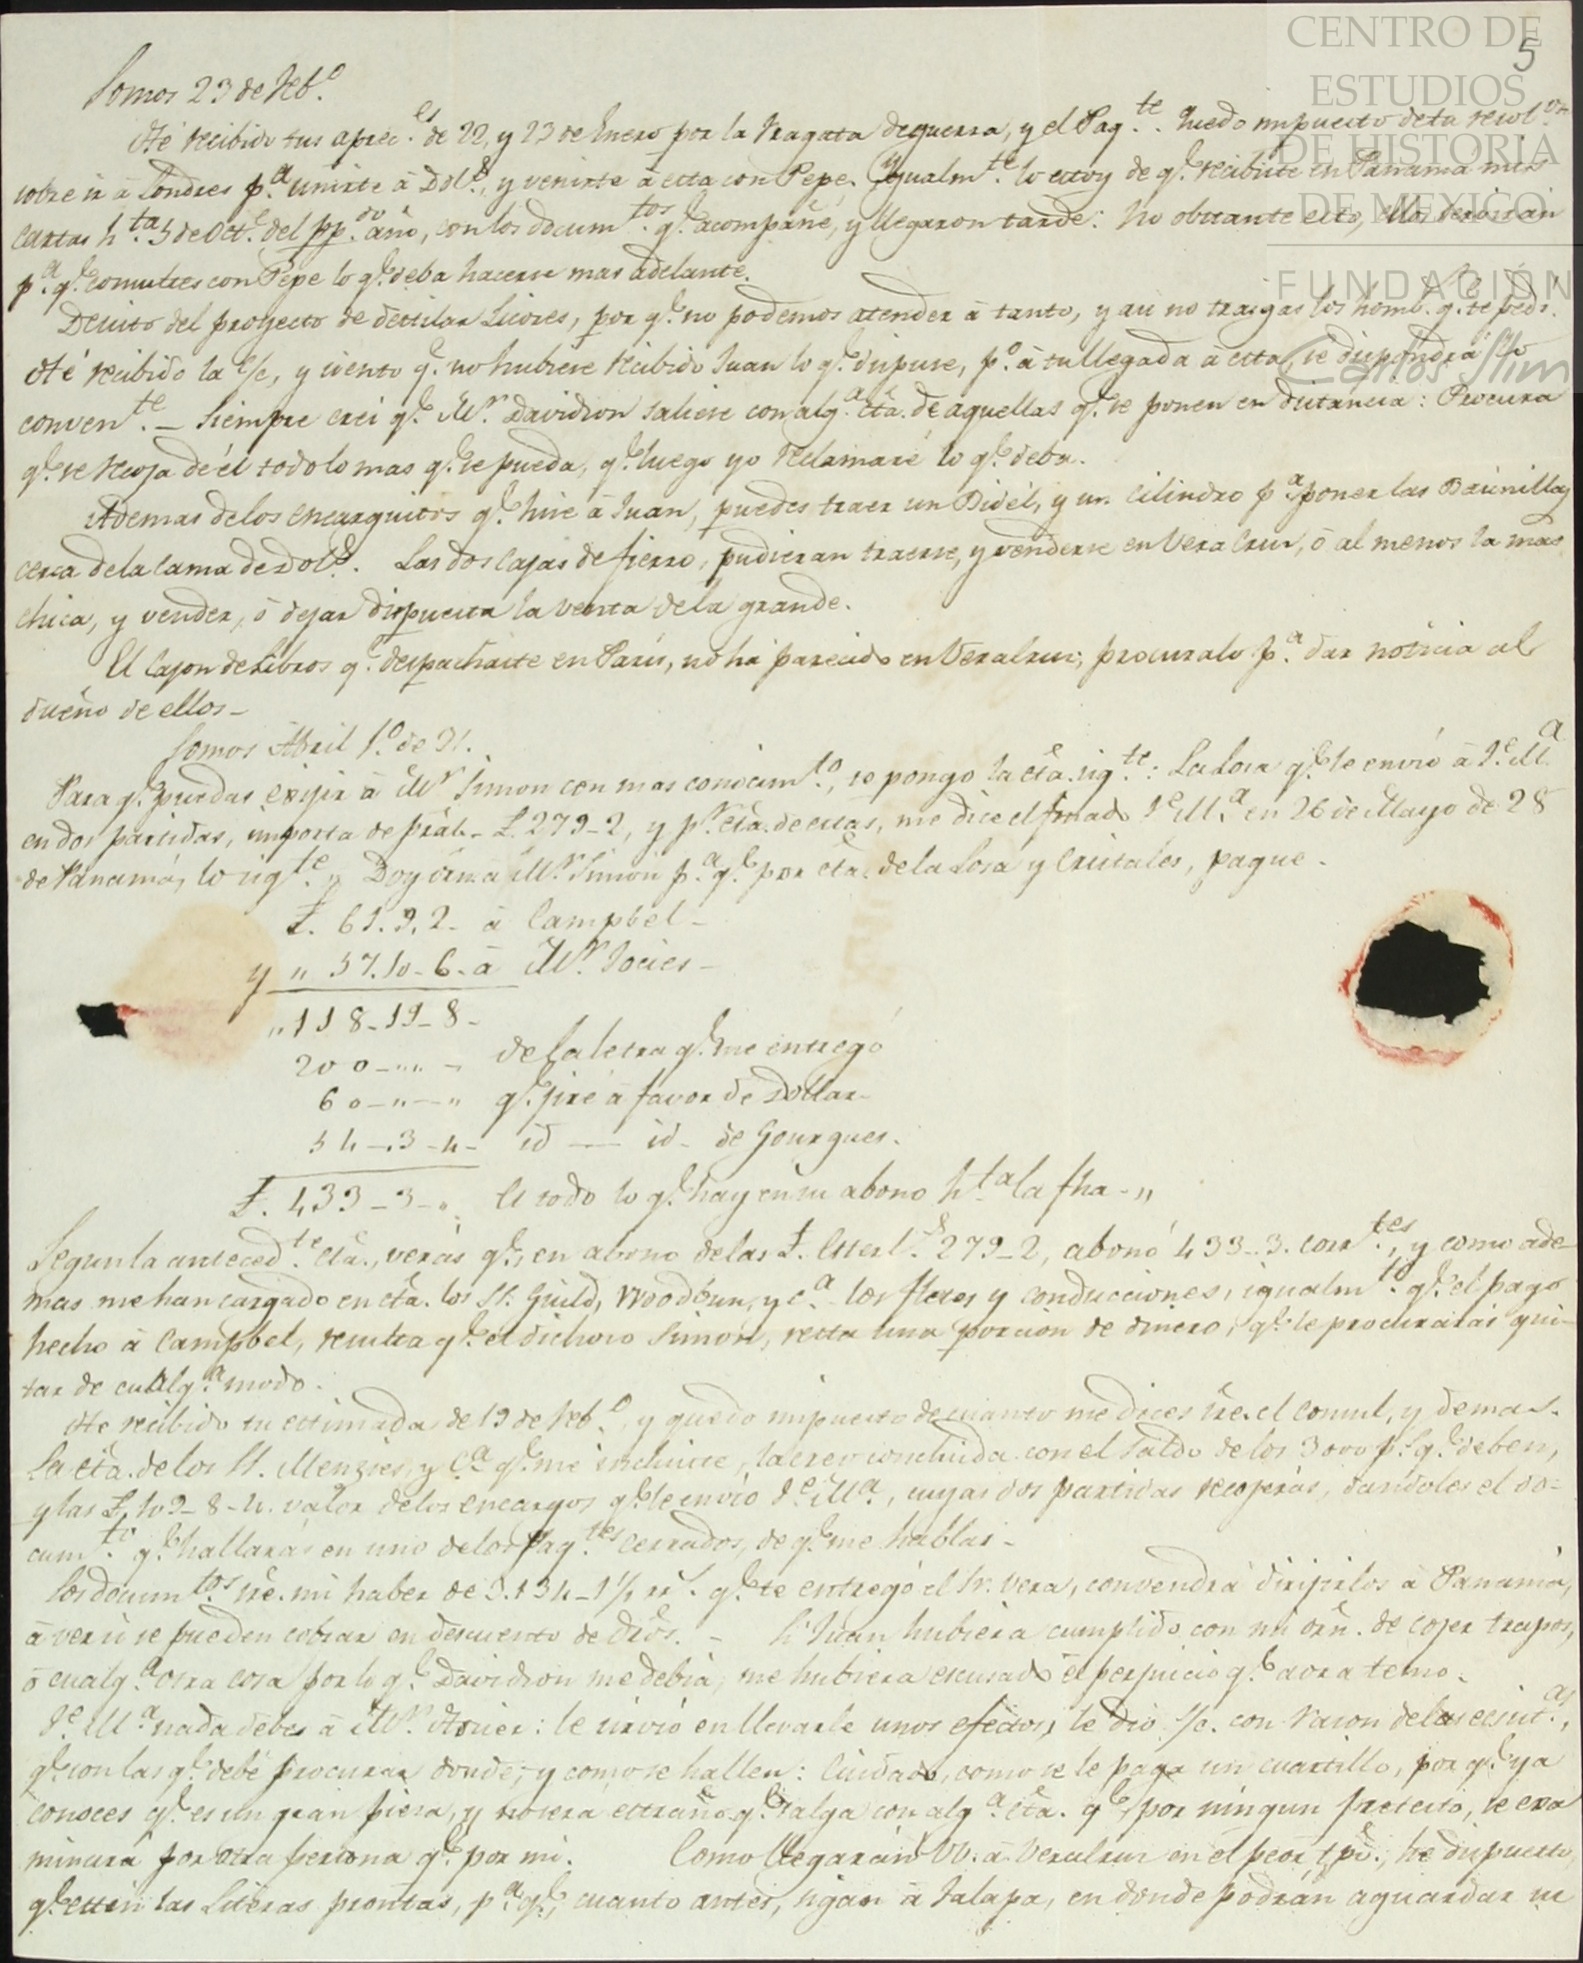 CENTRO DE
ESTUDIOS
DE HISTORIA
DE MÉXICO
FUNDACIÓN
Carlos Slim
5
Somos 23 de Feb.º
He recibido tus aprec.es de 22, y 23 de Enero por la Fragata de guerra, y el Paq.te. Quedo impuesto de tu resol.on
sobre ir â Londres p.a unirte â Dol.s, y venirte â esta con Pepe. Ygualm.te lo estoy de q.e recibiste en Panamá mis
Cartas h.ta 5 de Oct.e del pp.do año, con los docum.tos q.e acompañé, y llegaron tarde: No obstante esto, ellos servirán
p.a q.e consultes con Pepe lo q.e deba hacerse mas adelante.
Desisto del proyecto de destilar Licores, por q.e no podemos atender â tanto, y asi no traigas los homb.s q.e te pedi.
Hé recibido la c/c, y siento q.e no hubiese recibido Juan lo q.e dispuse, p.o â tu llegada â esta, se dispondrá lo
conven.te. _ Siempre crei q.e M.r Davidson saliese con alg.a cta. de aquellas q.e se ponen en distancia: Procura
q.e se recoja de él todo lo mas q.e se pueda, q.e luego yo reclamaré lo q.e deba.
Ademas de los encarguitos q.e hise â Juan, puedes traer un Bidél, y un Cilindro p.a poner las Basinillas
cerca de la cama de Dol.s. Las dos Cajas de fierro, pudieran traerse, y venderse en Vera Cruz, ô al menos la mas
chica, y vender, ô dejar dispuesta la venta de la grande.
El Cajon de Libros q.e despachaste en Paris, no há parecido en Veracruz; procuralo p.a dar noticia al
dueño de ellos _
Somos Abril 1.º de 31.
Para q.e puedas exijir â M.r Simon con mas conocim.to, te pongo la cta. sig.te: La Losa q.e le envió â J.e M.a
en dos partidas, importa de prál. £ 279-2, y p.r cta. de estas, me dice el finado J.e M.a en 26 de Mayo de 28
de Panamá, lo sig.te „ Doy orn. â M.r Simon p.a q.e por cta. de la Losa y Cristales, pague _
£. 61. 9. 2 - â Campbel _
y „ 57. 10 - 6 - â M.r Josies _
„ 118 - 19 - 8 -
200 - „ „ - de la letra q.e me entregó
60 - „ - „ q.e jiré â favor de Dollar _
54 - 3 - 4 - id — id - de Gourgues.
£. 433 - 3 - „ Es todo lo q.e hay en su abono h.ta la fha - „
Segun la anteced.te cta., verás q.e, en abono de las £. Esterl.s 279-2, abonó 433-3. corr.tes, y como ade-
mas me han cargado en cta. los SS. Guild, Woodbun, y C.a los fletes y conducciones, igualm.te q.e el pago
hecho â Campbel, resulta q.e el dichoso Simon, resta una porcion de dinero, q.e le procurarás qui-
tar de cualq.a modo.
He recibido tu estimada de 19 de Feb.o, y quedo impuesto de cuanto me dices sre. el Consul, y demas.
La cta. de los SS. Menzies, y C.a q.e me incluiste, la creo concluida con el saldo de los 3000 p.s q.e deben,
y las £ 109-8-4. valor de los encargos q.e le envió J.e M.a, cuyas dos partidas recojerás, dandoles el do-
cum.to q.e hallarás en uno de los Paq.tes cerrados, de q.e me hablas _
Los docum.tos sre. mi haber de 3.134-1½ rr.s q.e te entregó el Sr. Vera, convendrá dirijirlos â Panamá,
â ver si se pueden cobrar en descuento de dros. _ Si Juan hubiera cumplido con mi orn. de cojer trapos,
ô cualq.a otra cosa por lo q.e Davidson me debia, me hubiera escusado el perjuicio q.e aora temo.
J.e M.a nada debe â M.r : le sirvió en llevarle unos efectos, le dió c/c. con razon de las ,
q.e son las q.e debe procurar donde, y como se hallen: Cuidado, como se le paga un cuartillo, por q.e ya
conoces q.e es un gran piesa, y no sera estraño q.e salga con alg.a cta. q.e por ningun pretesto, se exa
minará por otra persona q.e por mi. Como llegarán VV. â Veracruz en el peor tpo., he dispuesto
q.e estén las Literas prontas, p.a q.e, cuanto antes, sigan â Jalapa, en donde podrán aguardar su